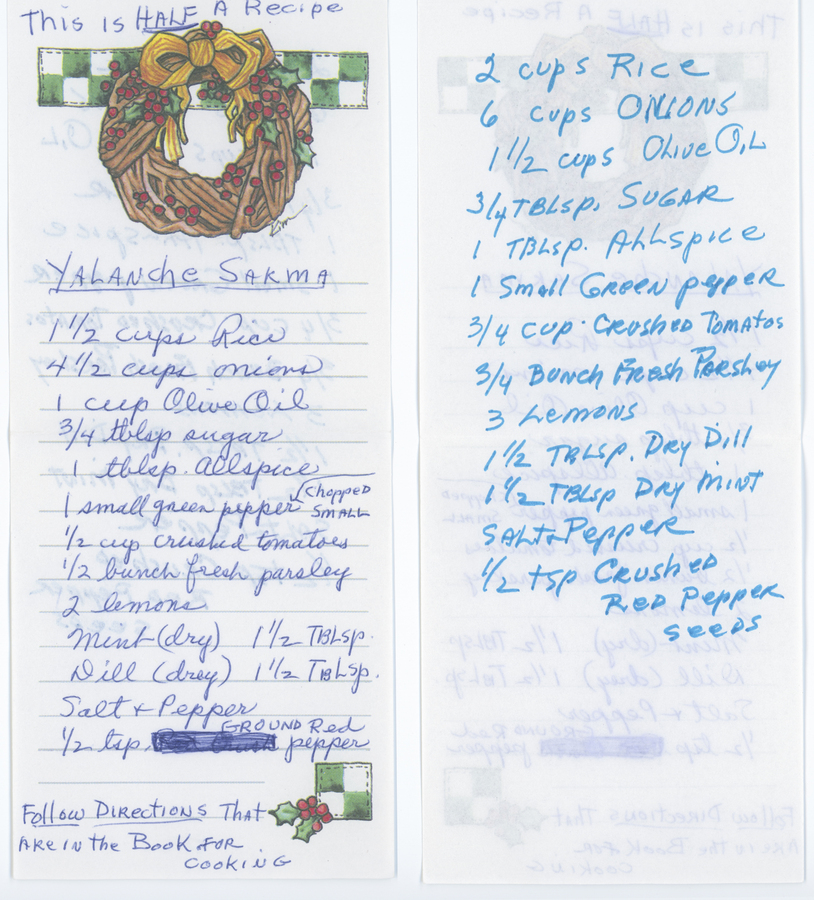 This is HALF A Recipe
YALANCHE SARMA
1 1/2 cups Rice
4 1/2 cups onions
1 cup Olive Oil
3/4 tblsp sugar
1 tblsp. Allspice
1 small green pepper Chopped SMALL
1/2 cup crushed tomatoes
1/2 bunch fresh parsley
2 lemons
Mint (dry) 1 1/2 TBLSP.
Dill (drey) 1 1/2 TBLSP.
Salt + Pepper
1/2 tsp. GROUND Red pepper
Follow DIRECTIONS That
ARE in the Book FOR
COOKING
2 cups Rice
6 cups ONIONS
1 1/2 cups Olive OIL
3/4 TBLSP. SUGAR
1 TBLSP. ALLSPICE
1 Small GREEN pepper
3/4 CUP. CRUSHED TOMATOS
3/4 BUNCH FRESH PARSLEY
3 LEMONS
1 1/2 TBLSP. DRY DILL
1 1/2 TBLSP DRY MINT
SALT + PEPPER
1/2 tsp CRUSHED
RED PEPPER
SEEDS